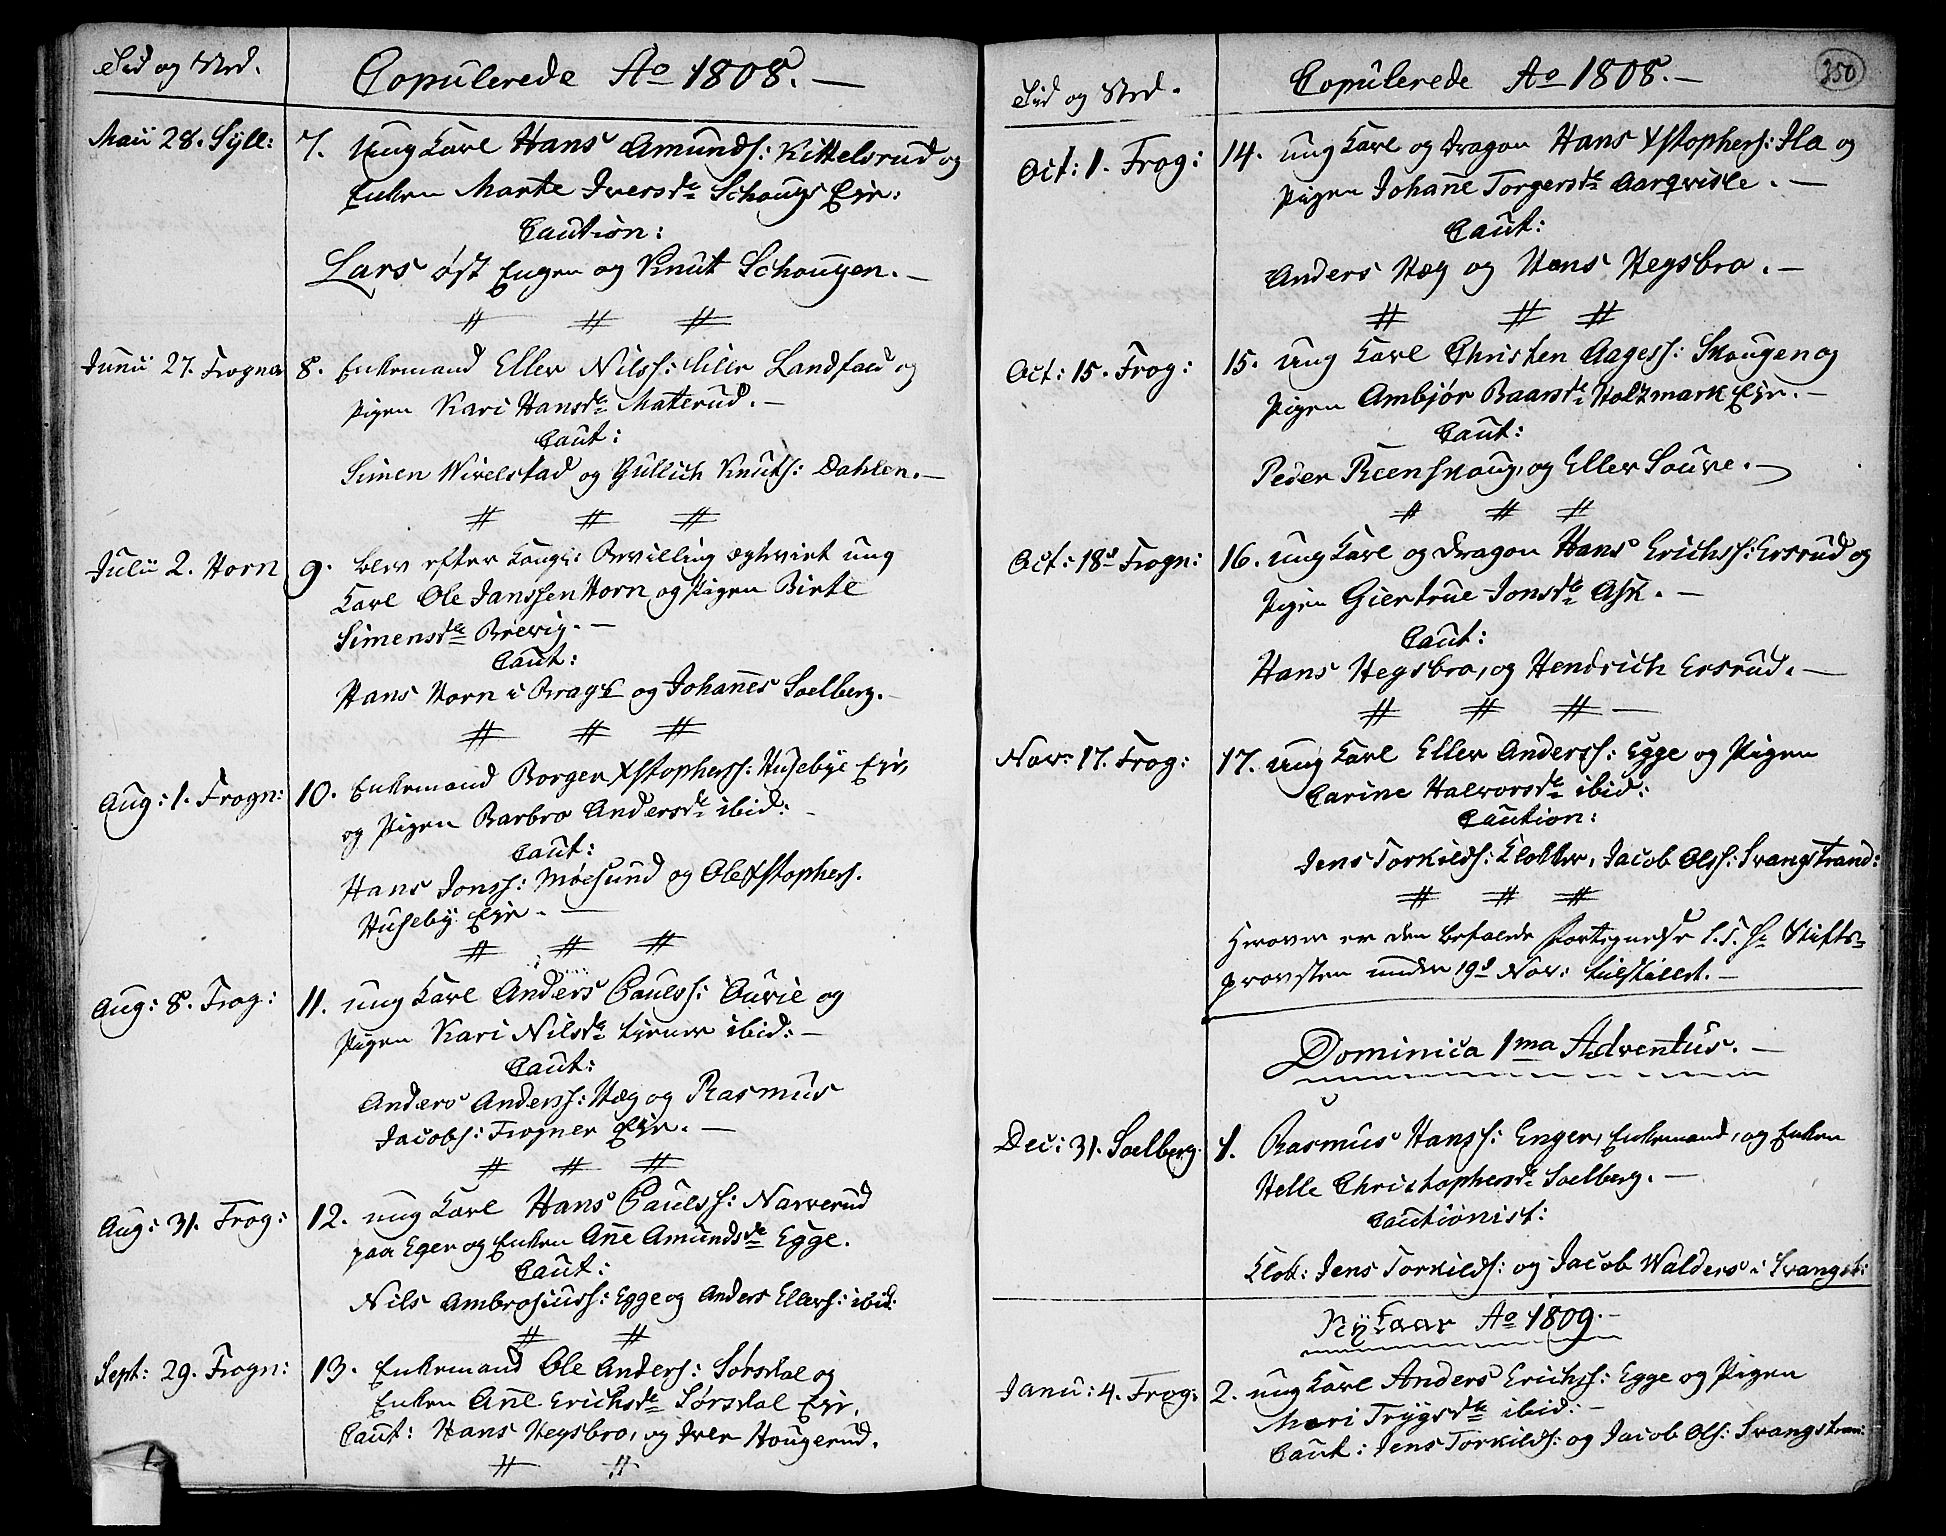 Tid og Sted.
Copulerede Ao 1808.
Maii 28. Sÿll:
7. Ung Karl Hans Amunds: Kittelsrud og
Enken Marte Iversdr Schougs Eje:
Caution:
Lars øst Engen og Knut Schougen.
Junii 27. Frogner
8. Enkemand Eller Nilss: lille Landfald og
Pigen Kari Hansdr Materud.
Caut:
Simen Wivelstad og Gullich Knuts: Dahlen.
Julii 2. Horn
9. blev efter Kongl: Bevilling ægteviet ung
Karl Ole Janssen Horn og Pigen Birte
Simensdr Brewig.
Caut:
Hans Horn i Brags og Johannes Soelberg.
Aug: 1. Frogn:
10. Enkemand Borger Xstophers: Husebye Eje,
og Pigen Barbro Andersdr ibid:
Caut:
Hans Jonss: Møesund og Ole Xstophers.
Husebÿ Eje.
Aug: 8. Frog:
11. ung Karl Anders Pauls: Aurie og
Pigen Kari Nilsdr tiener ibid:
Caut:
Anders Anderss: Hæg og Rasmus
Jacobs: Frogner Eje.
Aug: 31. Frog:
12. ung Karl Hans Paulss: Narverud
paa Eger og Enken Ane Amundsdr Egge.
Caut:
Nils Ambrosiuss: Egge og Anders Ellers: ibid:
Sept: 29. Frogn:
13. Enkemand Ole Anders: Sørsdal og
Enken Ane Erichsdr Sørsdal Eje.
Caut: Hans Hegsbro, og Iver Hougerud.
350
Tid og Sted.
Copulerede Ao 1808.
Oct: 1. Frog:
14. ung Karl og Dragon Hans Xstophers: Ila og
Pigen Johane Torgersdr Aarqvisle.
Caut:
Anders Hæg og Hans Hegsbro.
Oct: 15. Frog:
15. ung Karl Christen Aagess: Skougen og
Pigen Ambjør Baarsdr Holtzmark Eje.
Caut:
Peder Reenskoug, og Eller Soure.
Oct: 18d Frogn:
16. ung Karl og Dragon Hans Erichss: Ersrud og
Pigen Giertrue Jonsdr Ask.
Caut:
Hans Hegsbro, og Hendrich Ersrud.
Nov: 17. Frog:
17. ung Karl Eller Anderss: Egge og Pigen
Carine Halvorsdr ibid:
Caution:
Jens Torkilds: Klokker, Jacob Olss: Svangstrand:
Herover er den befalede Fortegnelse S. T. Hr Stifts-
provsten under 19d Nov: tilstillet.
Dominica 1ma Adventus.
Dec: 31. Soelberg.
1. Rasmus Hanss: Enger, Enkemand, og Enken
Helle Christophersdr Soelberg.
Cautionist:
Klok: Jens Torkilds: og Jacob Walders i Svangst:
Nÿtaar Ao 1809.
Janu: 4. Frog:
2. ung Karl Anders Erichs: Egge og Pigen
Mari Trÿgsdr ibid:
Caut: Jens Torkilds: og Jacob Ols: Svangstran: